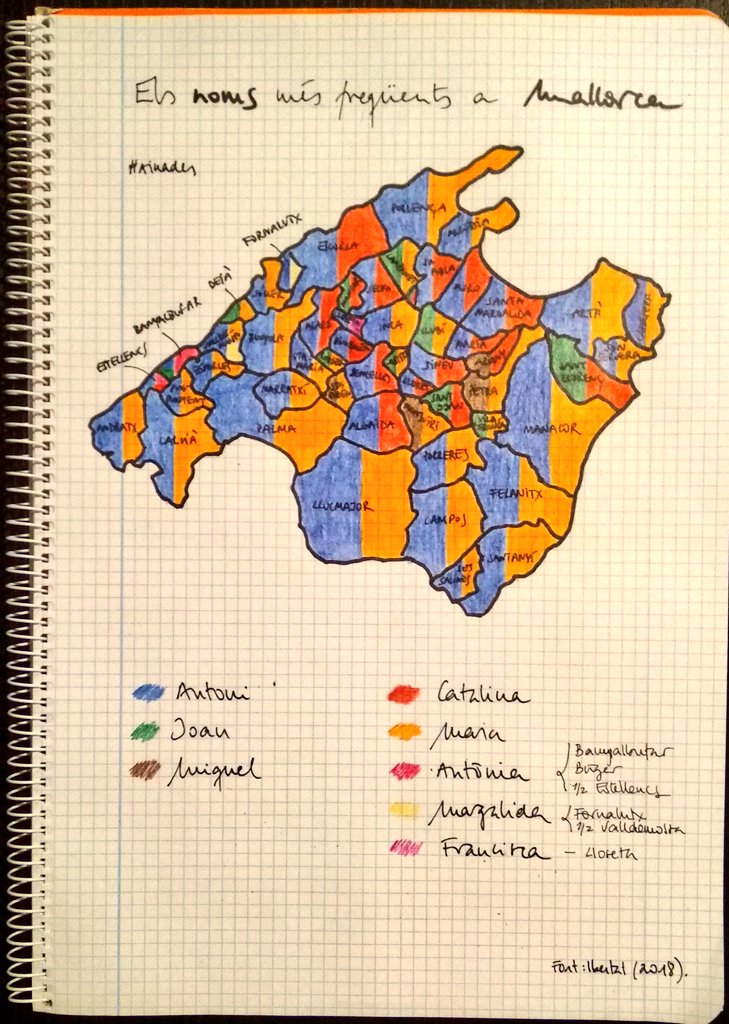 Els noms més freqüents a Mallorca
#Hainades
FORNALUTX
DEIÀ
BANYALBUFAR
ESTELLENCS
POLLENÇA
ALCÚDIA
ESCORCA
SÓLLER
SELVA
SA POBLA
MURO
SANTA MARGALIDA
ARTÀ
CAPDEPERA
SON SERVERA
SANT LLORENÇ
BUNYOLA
ALARÓ
INCA
LLUBÍ
MARIA
SINEU
PETRA
ESPORLES
PUIGPUNYENT
MARRATXÍ
SANTA MARIA
SENCELLES
SANT JOAN
MANACOR
ANDRATX
CALVIÀ
PALMA
ALGAIDA
VILAFRANCA
PORRERES
FELANITX
LLUCMAJOR
CAMPOS
SANTANYÍ
SES SALINES
Antoni
Joan
Miquel
Catalina
Maria
Antònia
Banyalbufar
Búger
1/2 Estellencs
Margalida
Fornalutx
1/2 Valldemossa
Francisca — Lloreta
Font: Ibestat (2018).